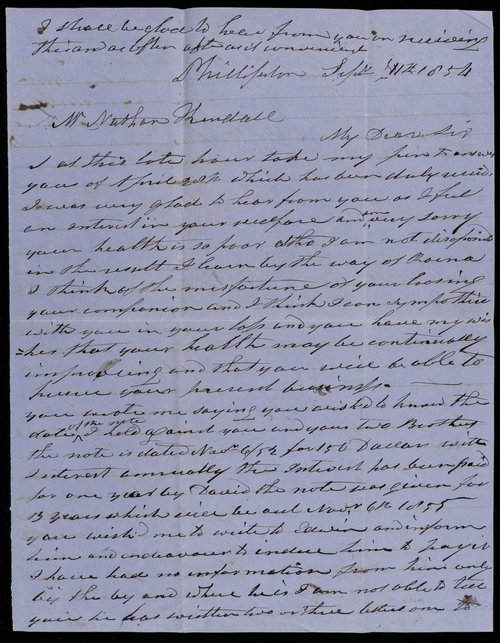 I shall be glad to hear from you on receiving
this and as often after as is convenient
Phillipston Sept 11th 1854
Mr Nathan Kendall
My Dear Sir
I at this late hour take my pen to answer
yours of April 28th which has been duly receivd
I was very glad to hear from you as I feel
an interest in your welfare and am very sorry
your health is so poor altho I am not disapointed
in the result I learn by the way of
I think of the misfortune of your loosing
your companion and I think I can sympothise
with you in your loss and you have my wis
=hes that your health may be continually
improveing and that you will be able to
persue your present business
you wrote me saying you wished to know the
date of the note I hold against you and your two Brothers
the note is dated Novr 6/52 for 150 Dollars with
interest annually the Interest has been paid
for one year by David the note was given for
3 years which will be out Novr 6th 1855
you wish'd me to write to Edwin and inform
him and endeavour to induce him to pay it
I have had no information from him only
by the by and where he is I am not able to tell
you he has written two or three letters one to